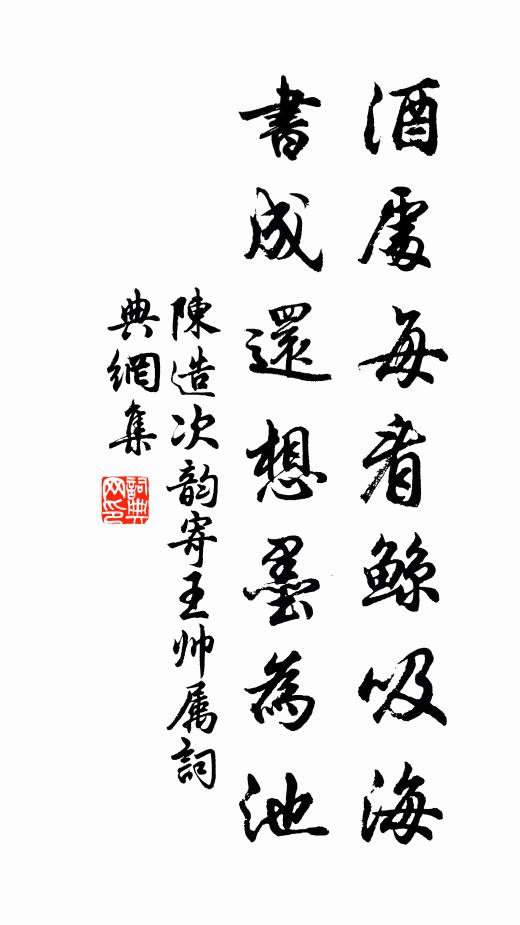 酒處每看鯨吸海
書成還想墨為池
陳造次韵寄王帅属詞
典網集
詞典网印